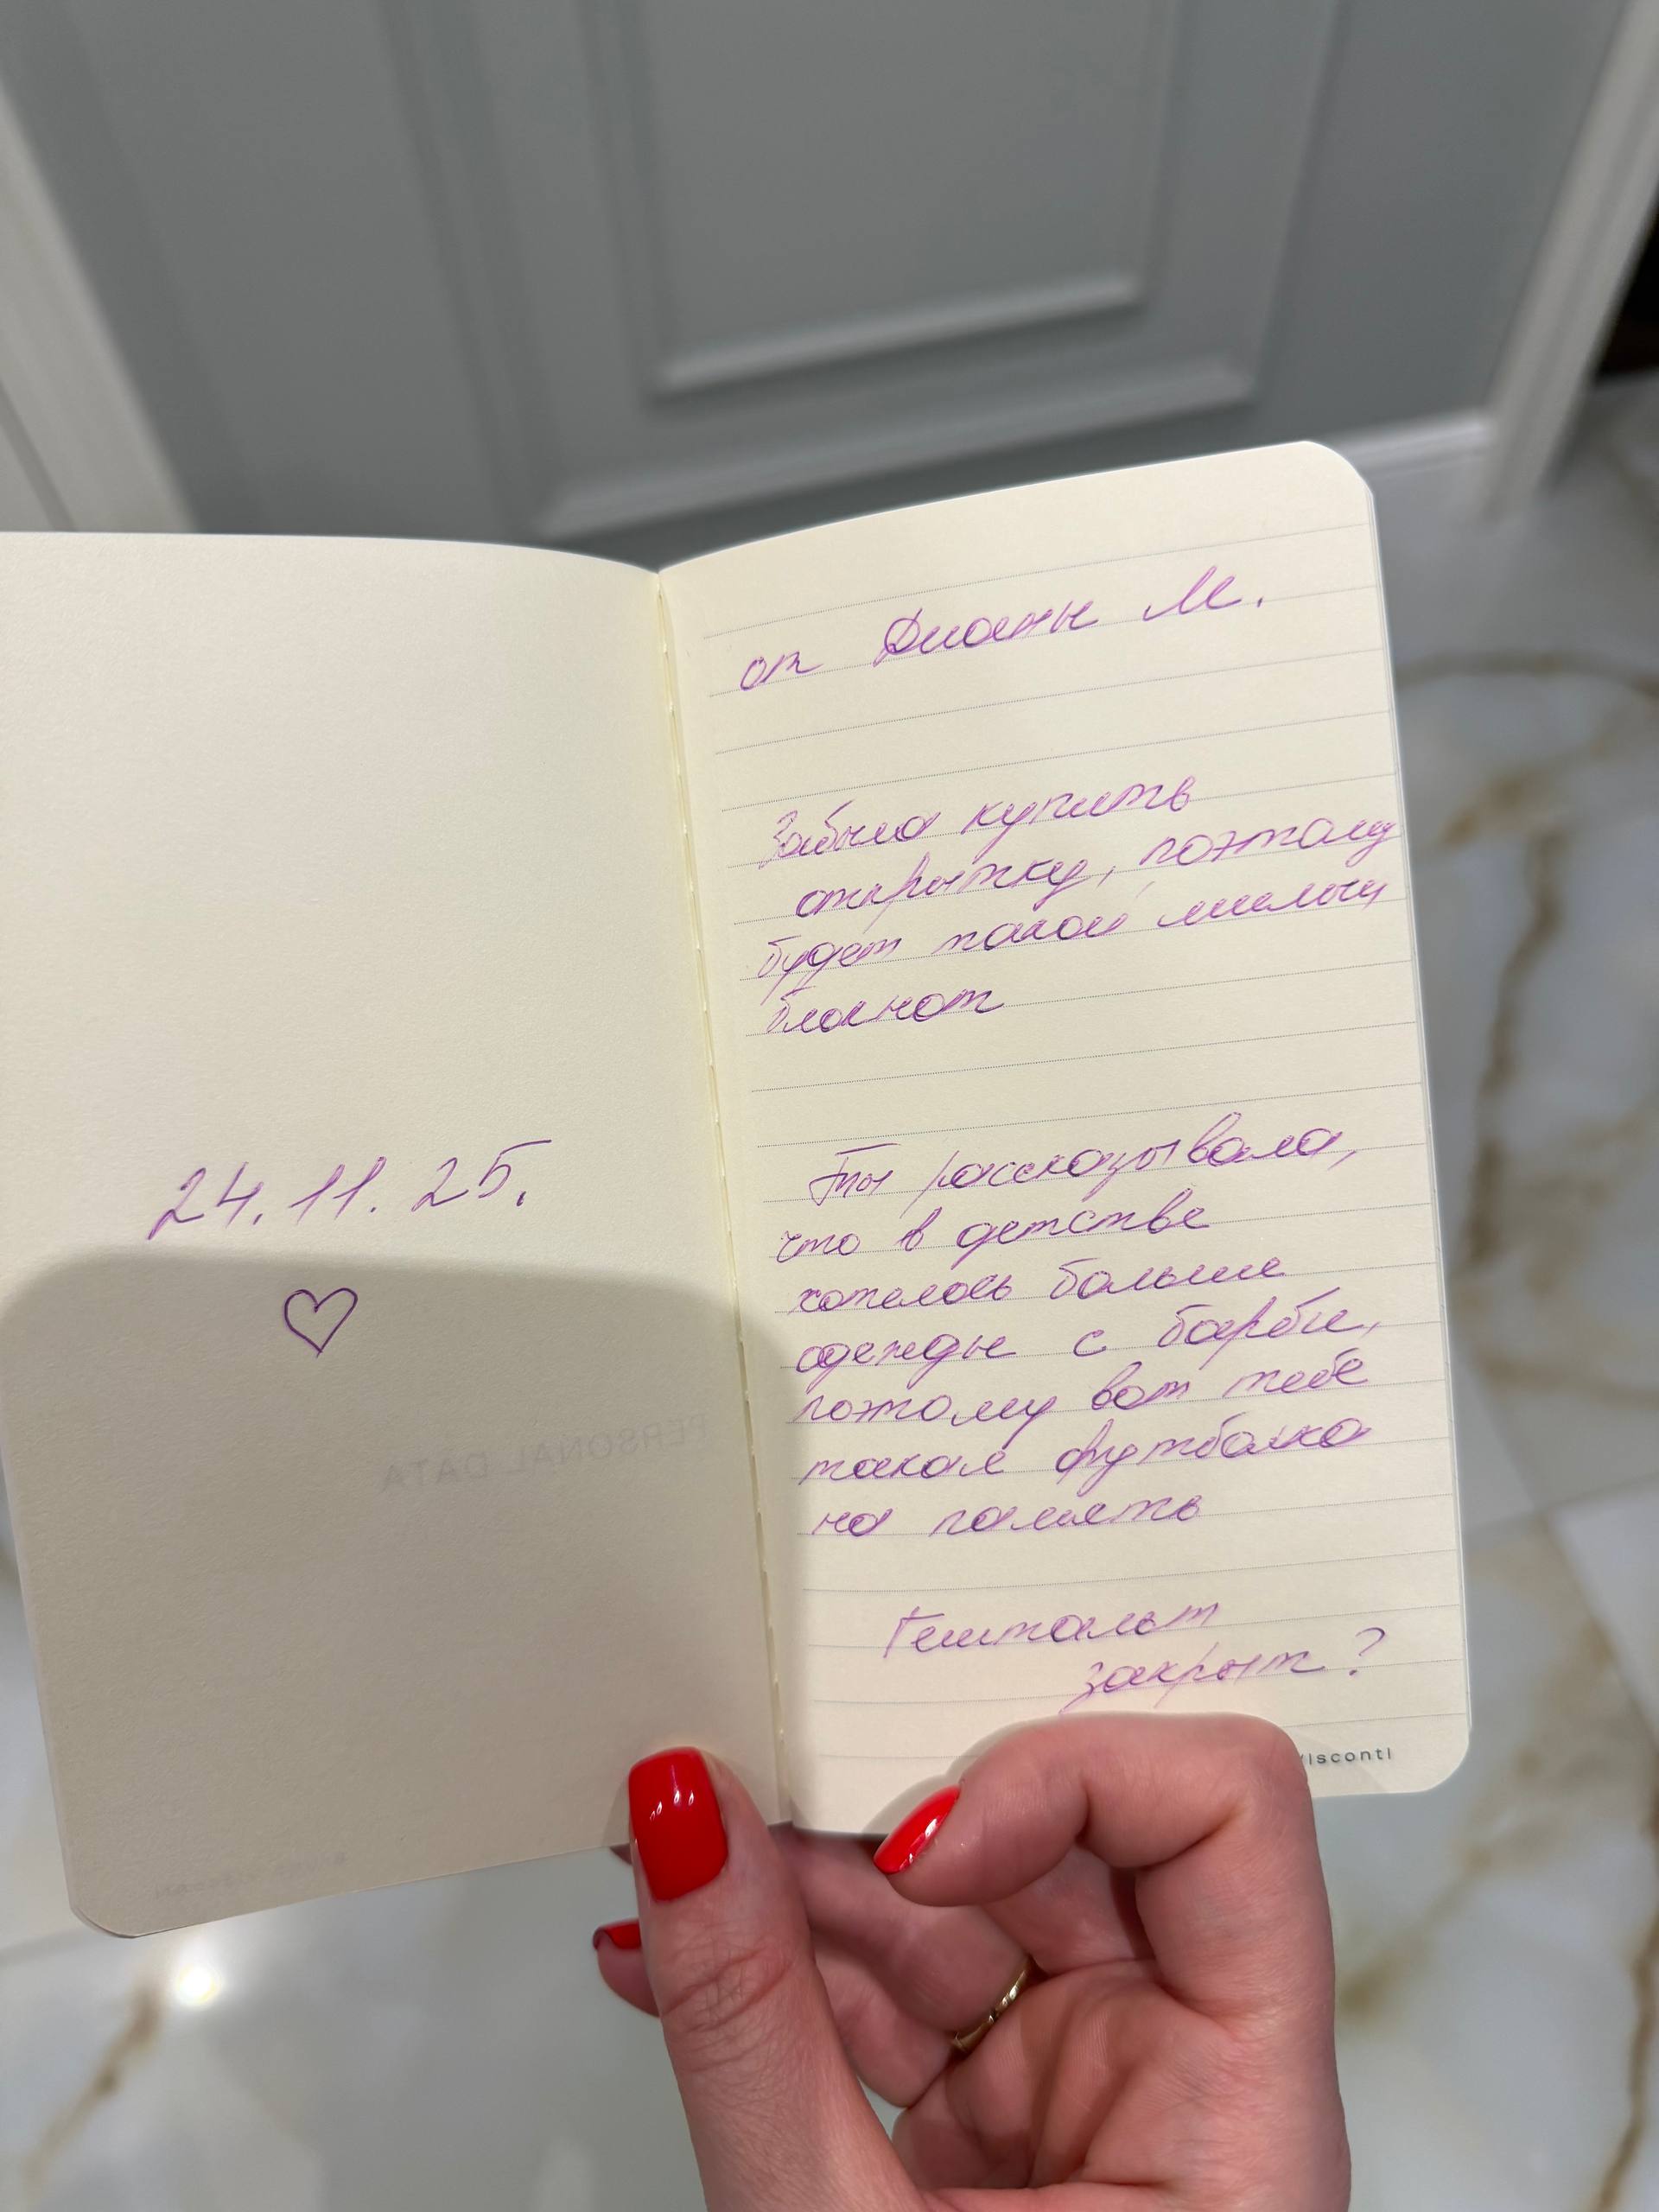 24.11.25.
PERSONAL DATA
от Дианы М.
Забыла купить
открытку, поэтому
будет такой милый
блокнот
Ты рассказывала,
что в детстве
хотелось больше
одежды с барби,
поэтому вот тебе
такая футболка
на память
Гештальт
закрыт?
visconti